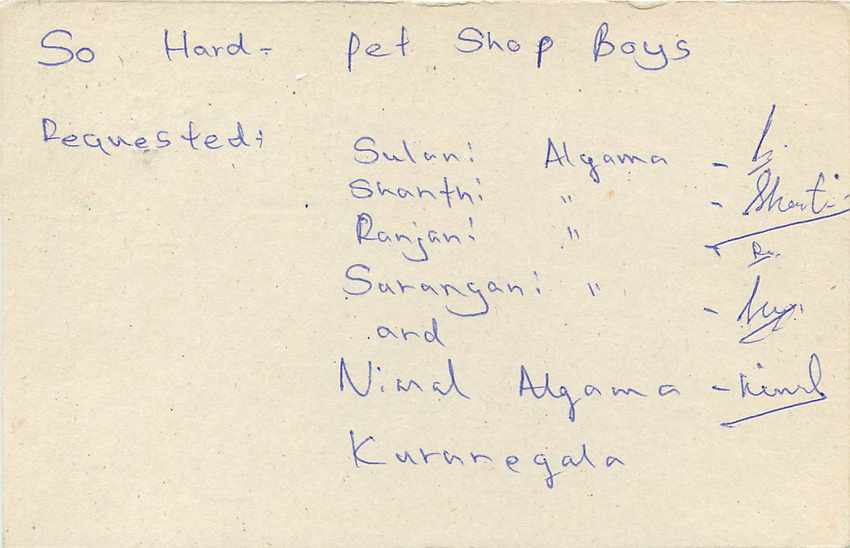 So Hard - Pet Shop Boys
Requested:
Sulani Algama -
Shanthi " - Shanti
Ranjani " - Ra.
Sarangani " -
and
Nimal Algama - Nimal
Kurunegala